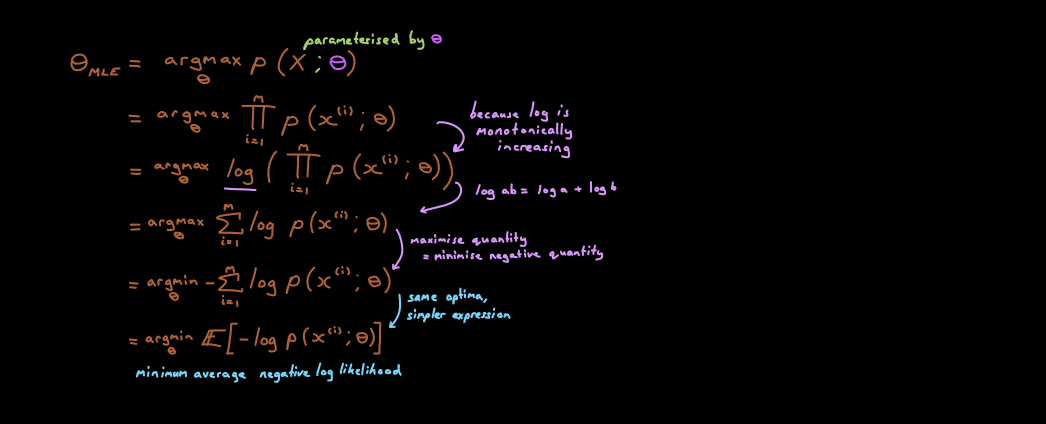 parameterised by θ
θ_MLE = argmax_θ p (X ; θ)
= argmax_θ ∏_{i=1}^{m} p (x^{(i)} ; θ)
because log is
monotonically
increasing
= argmax_θ log ( ∏_{i=1}^{m} p (x^{(i)} ; θ))
log ab = log a + log b
= argmax_θ ∑_{i=1}^{m} log p (x^{(i)} ; θ)
maximise quantity
= minimise negative quantity
= argmin_θ - ∑_{i=1}^{m} log p (x^{(i)} ; θ)
same optima,
simpler expression
= argmin_θ 𝔼 [- log p (x^{(i)} ; θ)]
minimum average negative log likelihood